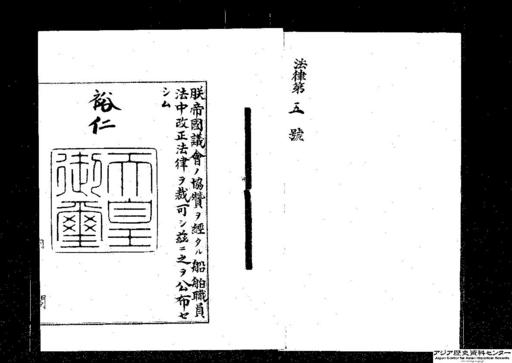 法律第五號
朕帝國議會ノ協贊ヲ經タル船舶職員
法中改正法律ヲ裁可シ茲ニ之ヲ公布セ
シム
裕仁
天皇
御璽
アジア歴史資料センター
Japan Center for Asian Historical Records